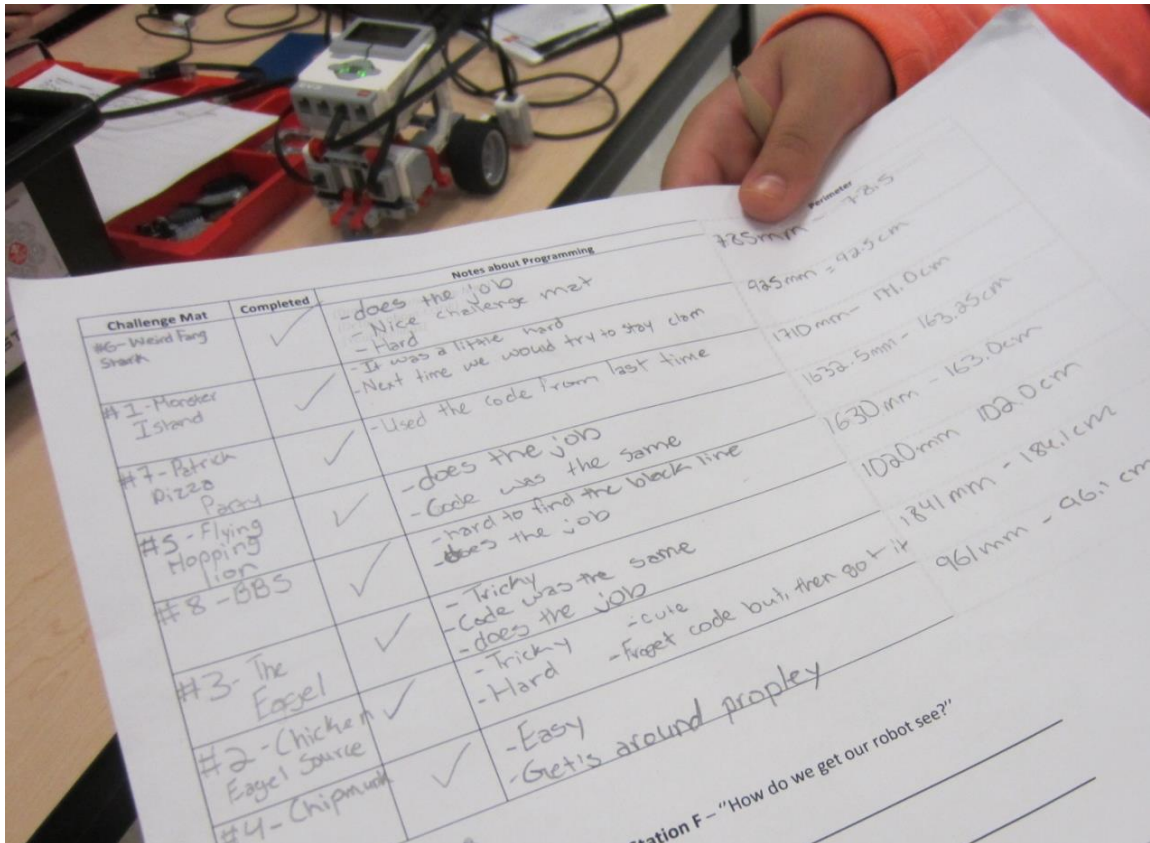 Challenge Mat Completed Notes about Programming Perimeter
#6-Weird Fang
- does the job
- Nice challenge mat
- Hard
785mm - 78.5
#1-Monster
Island
- It was a little hard
- Next time we would try to stay clam
925mm = 92.5cm
#7-Patrick
Pizza
Party
- Used the code from last time
1710mm - 171.0cm
#5-Flying
Hopping
lion
- does the job
- Code was the same
1632.5mm - 163.25cm
#8-BBS
- hard to find the black line
- does the job
1630mm - 163.0cm
#3-The
Eagel
- Tricky
- Code was the same
- does the job
1020mm 102.0cm
#2-Chicken
Eagel Source
- Tricky - cute
- Hard - Froget code but, then got it
1841mm - 184.1cm
#4-Chipmunk
- Easy
- Get's around propley
961mm - 96.1 cm
Station F – "How do we get our robot see?"